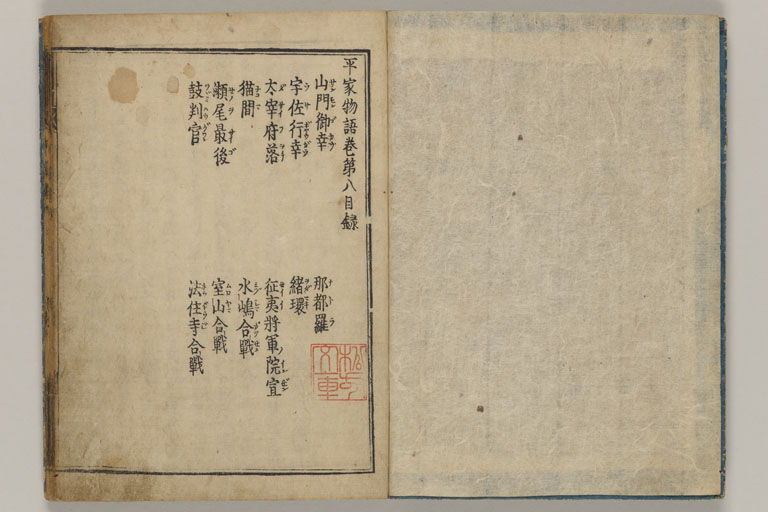 平家物語卷第八目録
山門御幸
那都羅
宇佐行幸
緒環
太宰府落
征夷將軍院宣
猫間
水嶋合戰
瀬尾最後
室山合戰
鼓判官
法住寺合戰